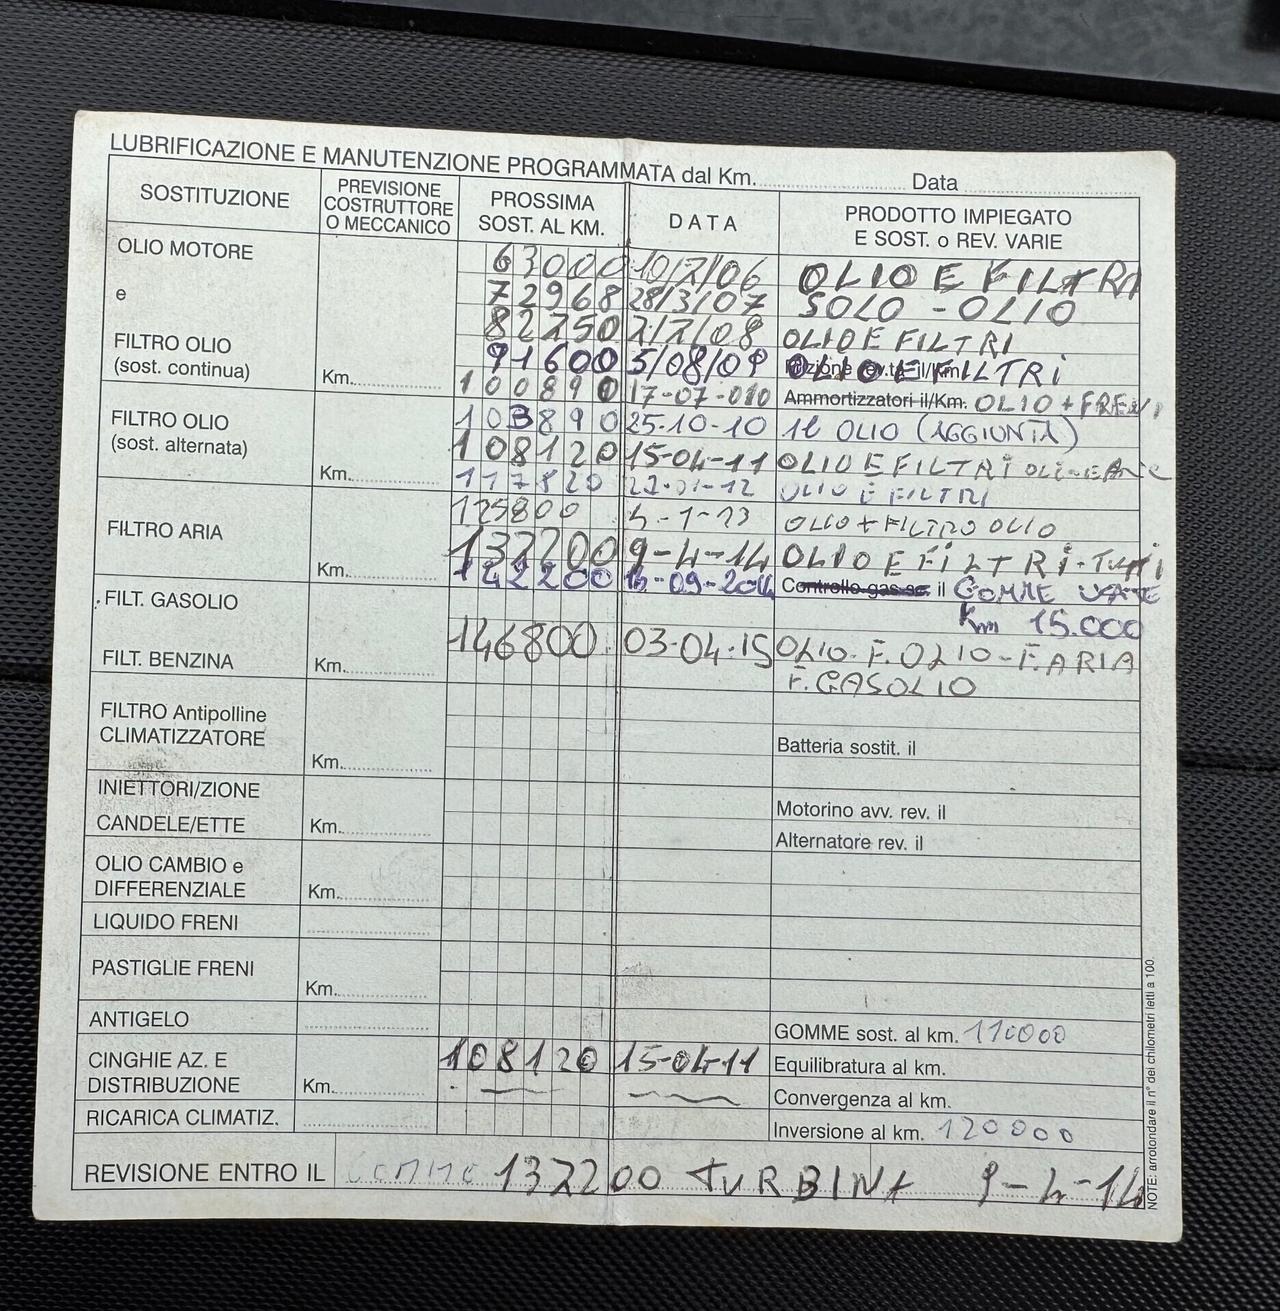 LUBRIFICAZIONE E MANUTENZIONE PROGRAMMATA dal Km. Data
SOSTITUZIONE PREVISIONE COSTRUTTORE O MECCANICO PROSSIMA SOST. AL KM. DATA PRODOTTO IMPIEGATO E SOST. o REV. VARIE
OLIO MOTORE 63000 10/7/06 OLIO E FILTRI
e 72968 28/3/07 SOLO - OLIO
82750 2/7/08 OLIO E FILTRI
FILTRO OLIO 91600 5/08/09 OLIO E FILTRI
(sost. continua) Km. 100890 17-07-010 Ammortizzatori il/Km. OLIO + FRENI
FILTRO OLIO 103890 25-10-10 1l OLIO (AGGIUNTA)
(sost. alternata) 108120 15-04-11 OLIO E FILTRI
Km. 117820 12 OLIO E FILTRI
125800 OLIO + FILTRO OLIO
FILTRO ARIA 137200 9-4-14 OLIO E FILTRI-TUTTI
Km. 142200 -09-2014 Controllo gas sc. il GOMME USATE
FILT. GASOLIO Km 15.000
146800 03-04-15 OLIO-F.OLIO-F.ARIA
FILT. BENZINA Km. F.GASOLIO
FILTRO Antipolline
CLIMATIZZATORE Batteria sostit. il
Km.
INIETTORI/ZIONE
Motorino avv. rev. il
CANDELE/ETTE Km. Alternatore rev. il
OLIO CAMBIO e
DIFFERENZIALE Km.
LIQUIDO FRENI
PASTIGLIE FRENI
Km.
ANTIGELO GOMME sost. al km. 110000
CINGHIE AZ. E 108120 15-04-11 Equilibratura al km.
DISTRIBUZIONE Km. Convergenza al km.
RICARICA CLIMATIZ. Inversione al km. 120000
REVISIONE ENTRO IL 137200 TURBINA 9-4-14
NOTE: arrotondare il n° dei chilometri letti a 100.